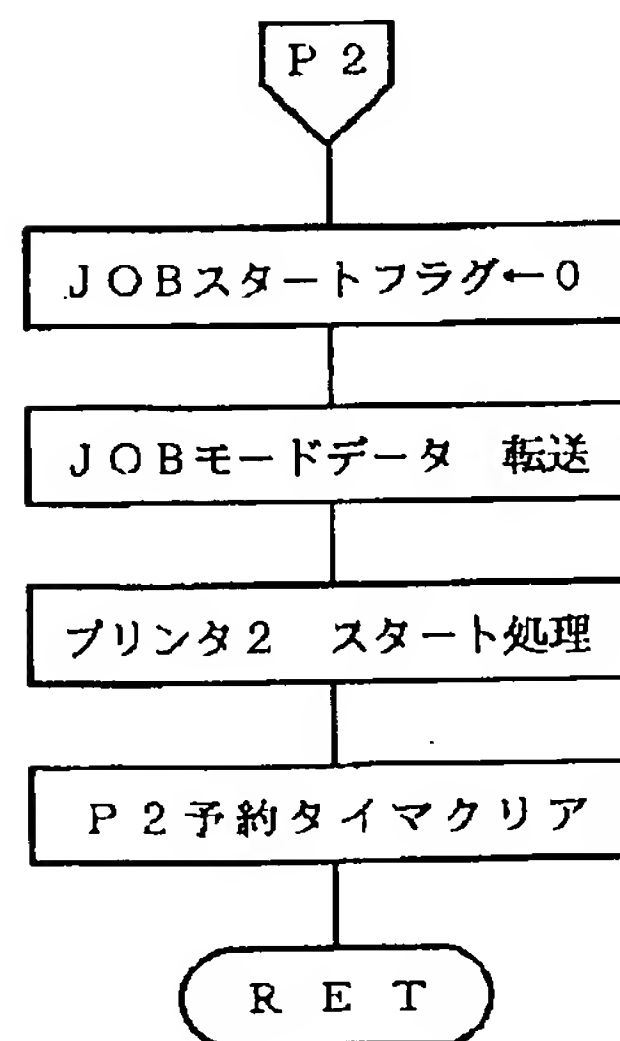 P 2
JOBスタートフラグ←0
JOBモードデータ 転送
プリンタ2 スタート処理
P2予約タイマクリア
RET